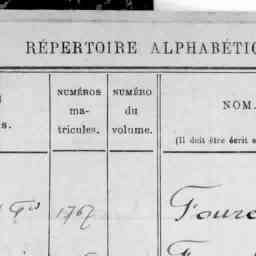 RÉPERTOIRE ALPHABÉTIQ
NUMÉROS
ma-
tricules.
NUMÉRO
du
volume.
NOM.
(Il doit être écrit e
s.
1767
Fourc